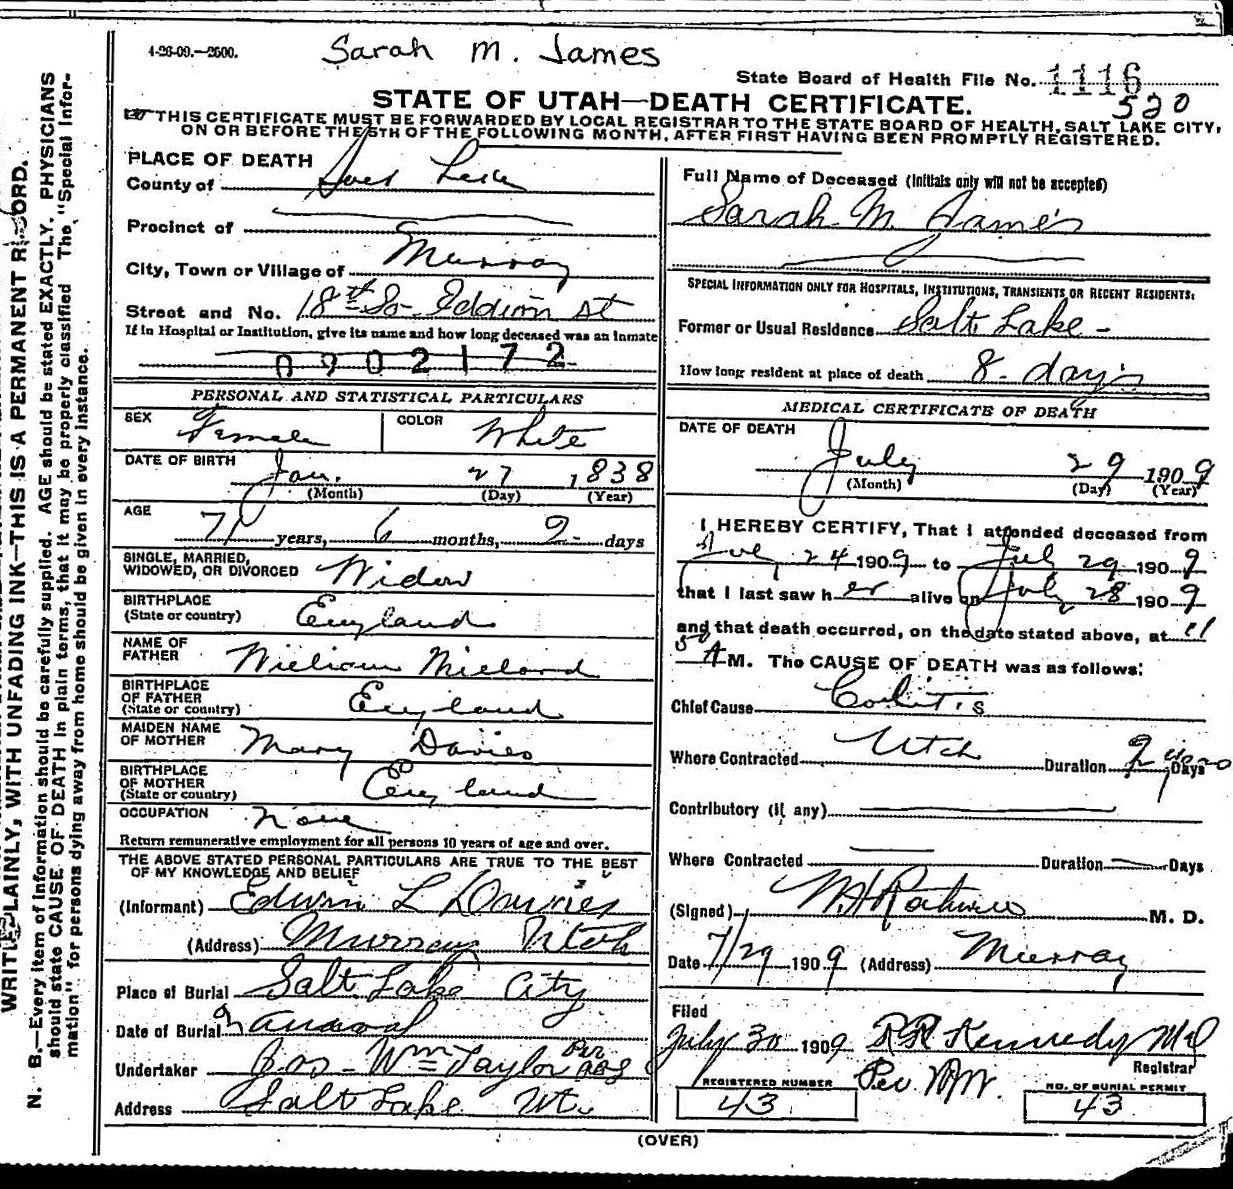 4-26-09.—2500.
Sarah M. James
State Board of Health File No. 1116
530
STATE OF UTAH—DEATH CERTIFICATE.
THIS CERTIFICATE MUST BE FORWARDED BY LOCAL REGISTRAR TO THE STATE BOARD OF HEALTH, SALT LAKE CITY,
ON OR BEFORE THE 5TH OF THE FOLLOWING MONTH, AFTER FIRST HAVING BEEN PROMPTLY REGISTERED.
PLACE OF DEATH
County of Salt Lake
Precinct of
City, Town or Village of Murray
Street and No. 18th So Eddison St
If in Hospital or Institution, give its name and how long deceased was an inmate
0902172
PERSONAL AND STATISTICAL PARTICULARS
SEX Female COLOR White
DATE OF BIRTH Jan. 27 1838
(Month) (Day) (Year)
AGE 71 years, 6 months, 2 days
SINGLE, MARRIED,
WIDOWED, OR DIVORCED Widow
BIRTHPLACE
(State or country) England
NAME OF
FATHER William Millard
BIRTHPLACE
OF FATHER
(State or country) England
MAIDEN NAME
OF MOTHER Mary Davies
BIRTHPLACE
OF MOTHER
(State or country) England
OCCUPATION None
Return remunerative employment for all persons 10 years of age and over.
THE ABOVE STATED PERSONAL PARTICULARS ARE TRUE TO THE BEST
OF MY KNOWLEDGE AND BELIEF
(Informant) Edwin L Davies
(Address) Murray Utah
Place of Burial Salt Lake City
Date of Burial
Undertaker Jos- Wm Taylor Per
Address Salt Lake Ut.
Full Name of Deceased (Initials only will not be accepted)
Sarah M. James
SPECIAL INFORMATION ONLY FOR HOSPITALS, INSTITUTIONS, TRANSIENTS OR RECENT RESIDENTS:
Former or Usual Residence Salt Lake -
How long resident at place of death 8- days
MEDICAL CERTIFICATE OF DEATH
DATE OF DEATH
July 29 1909
(Month) (Day) (Year)
I HEREBY CERTIFY, That I attended deceased from
July 24 1909 to July 29 1909
that I last saw her alive on July 28 1909
and that death occurred, on the date stated above, at 11
50 A M. The CAUSE OF DEATH was as follows:
Chief Cause Colitis
Where Contracted Utah Duration 9 Days
Contributory (if any)
Where Contracted Duration Days
(Signed) M. D.
Date 7/29 1909 (Address) Murray
Filed
July 30 1909 Kennedy MD
Registrar
REGISTERED NUMBER Per NO. OF BURIAL PERMIT
43 43
(OVER)
WRITE PLAINLY, WITH UNFADING INK—THIS IS A PERMANENT RECORD.
N. B.—Every item of information should be carefully supplied. AGE should be stated EXACTLY. PHYSICIANS
should state CAUSE OF DEATH in plain terms, that it may be properly classified The "Special Infor-
mation" for persons dying away from home should be given in every instance.